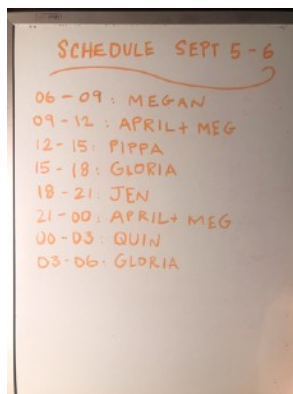 SCHEDULE SEPT 5-6
06-09: MEGAN
09-12: APRIL + MEG
12-15: PIPPA
15-18: GLORIA
18-21: JEN
21-00: APRIL + MEG
00-03: QUIN
03-06: GLORIA